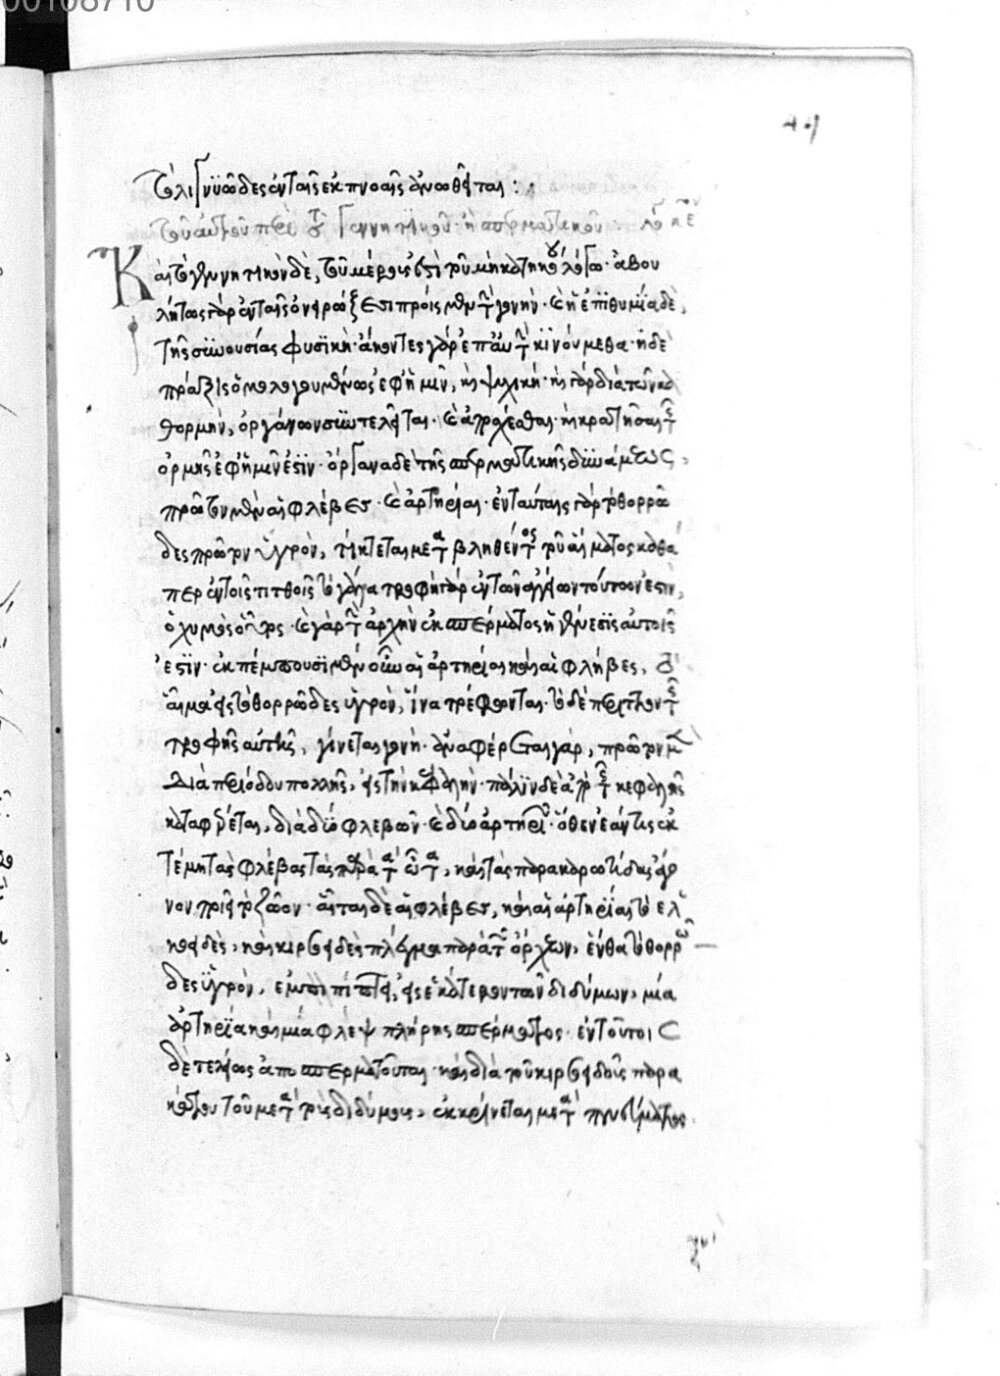 00108710
τὸ λιγνυῶδες ἐν ταῖς ἐκπνοαῖς ἀνωθεῖται:
τοῦ αὐτοῦ περὶ τοῦ γεννητικοῦ ἢ σπερματικοῦ λό κε
Καὶ τὸ γεννητικὸν δὲ, τοῦ μέρους ἐστὶ τοῦ μὴ κατηκόου λόγω· ἀβου
λήτως γὰρ ἐν τοῖς ὀνειρώξεσι προΐεμεν τὴν γονήν· καὶ ἡ ἐπιθυμία δὲ,
τῆς συνουσίας φυσικὴ· ἄκοντες γὰρ ἐπ αὐτὴν κινούμεθα· ἡ δὲ
πρᾶξις ὁμολογουμένως ἐφ ἡμῖν, καὶ ψυχική· καὶ γὰρ διὰ τῶν κα
θορμὴν, ὀργάνων συντελεῖται· καὶ ἀποσχέσθαι· καὶ κρατῆσαι τῆς
ὁρμῆς ἐφ ἡμῖν ἐστὶν· ὄργανα δὲ τῆς σπερματικῆς δυνάμεως,
πρῶτον μὲν αἱ φλέβες· καὶ ἀρτηρίαι· ἐν ταύταις γὰρ τὸ θορρῶ
δες πρῶτον ὑγρὸν, τίκτεται μεταβληθέντος τοῦ αἵματος καθά
περ ἐν τοῖς τιτθοῖς τὸ γάλα τροφὴ γὰρ ἐν τῶν ἀγγείων τούτων ἐστὶν,
ὁ χυμὸς οὗτος· καὶ γὰρ τὴν ἀρχὴν ἐκ σπέρματος ἡ γένεσις αὐτοῖς
ἐστὶν· ἐκπέμπουσι μὲν οὖν αἱ ἀρτηρίαι καὶ αἱ φλέβες, τὸ
αἷμα εἰς τὸ θορρῶδες ὑγρὸν, ἵνα τρέφωνται· τὸ δὲ περιττὸν τῆς
τροφῆς αὐτῆς, γίνεται γονὴ· ἀναφέρεται γάρ, πρῶτον μὲν
διὰ περιόδου πολλῆς, εἰς τὴν κεφαλήν· πάλιν δὲ ἀπὸ τῆς κεφαλῆς
καταφέρεται, διὰ δύο φλεβῶν· καὶ δύο ἀρτηριῶν· ὅθεν ἐάν τις ἐκ
τέμη τὰς φλέβας τὰς παρὰ τὰ ὦτα, καὶ τὰς παρὰ καρωτίδας ἄγο
νον ποιεῖ τὸ ζῶον· αὗται δὲ αἱ φλέβες, καὶ αἱ ἀρτηρίαι τὸ ἑλι
κοειδὲς, καὶ κιρσοειδὲς πλέγμα παρὰ τὸν ὄρχεων, ἔνθα τὸ θορρῶ
δες ὑγρὸν, ἐμπίπτει, εἰς ἑκάτερον τῶν διδύμων, μία
ἀρτηρία καὶ μία φλὲψ πλήρης σπέρματος· ἐν τούτοις
δὲ τελείως ἀποσπερματοῦται· καὶ διὰ τοῦ κιρσοειδοῦς παρα
κειμένου τοῦ μετὰ τοὺς διδύμους, ἐκκρίνεται μετὰ πνεύματος.